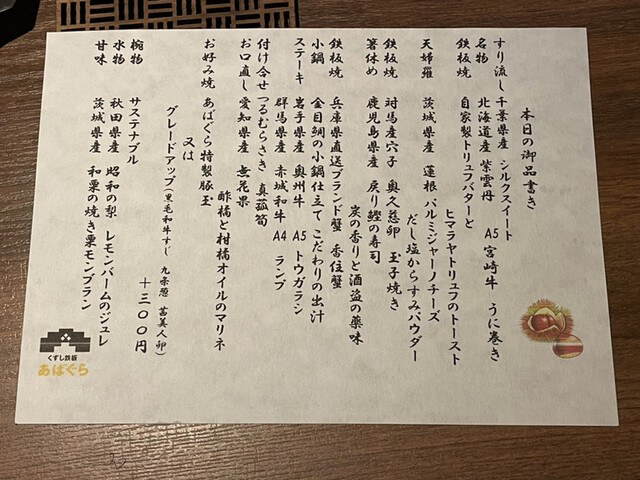 本日の御品書き
すり流し 千葉県産 シルクスイート
名物 北海道産 紫雲丹 A5宮崎牛 うに巻き
鉄板焼 自家製トリュフバターと
ヒマラヤトリュフのトースト
天婦羅 茨城県産 蓮根 パルミジャーノチーズ
だし塩からすみパウダー
鉄板焼 対馬産穴子 奥久慈卵 玉子焼き
箸休め 鹿児島県産 戻り鰹の寿司
炭の香りと酒盗の薬味
鉄板焼 兵庫県直送ブランド蟹 香住蟹
小鍋 金目鯛の小鍋仕立て こだわりの出汁
ステーキ 岩手県産 奥州牛 A5 トウガラシ
群馬県産 赤城和牛 A4 ランプ
付け合せ つるむらさき 真菰筍
お口直し 愛知県産 無花果
酢橘と柑橘オイルのマリネ
お好み焼 あばぐら特製豚玉
又は
グレードアップ(黒毛和牛すじ 九条葱 茜美人卵)
+三〇〇円
椀物 サステナブル
水物 秋田県産 昭和の梨 レモンバームのジュレ
甘味 茨城県産 和栗の焼き栗モンブラン
くずし鉄板
あばぐら